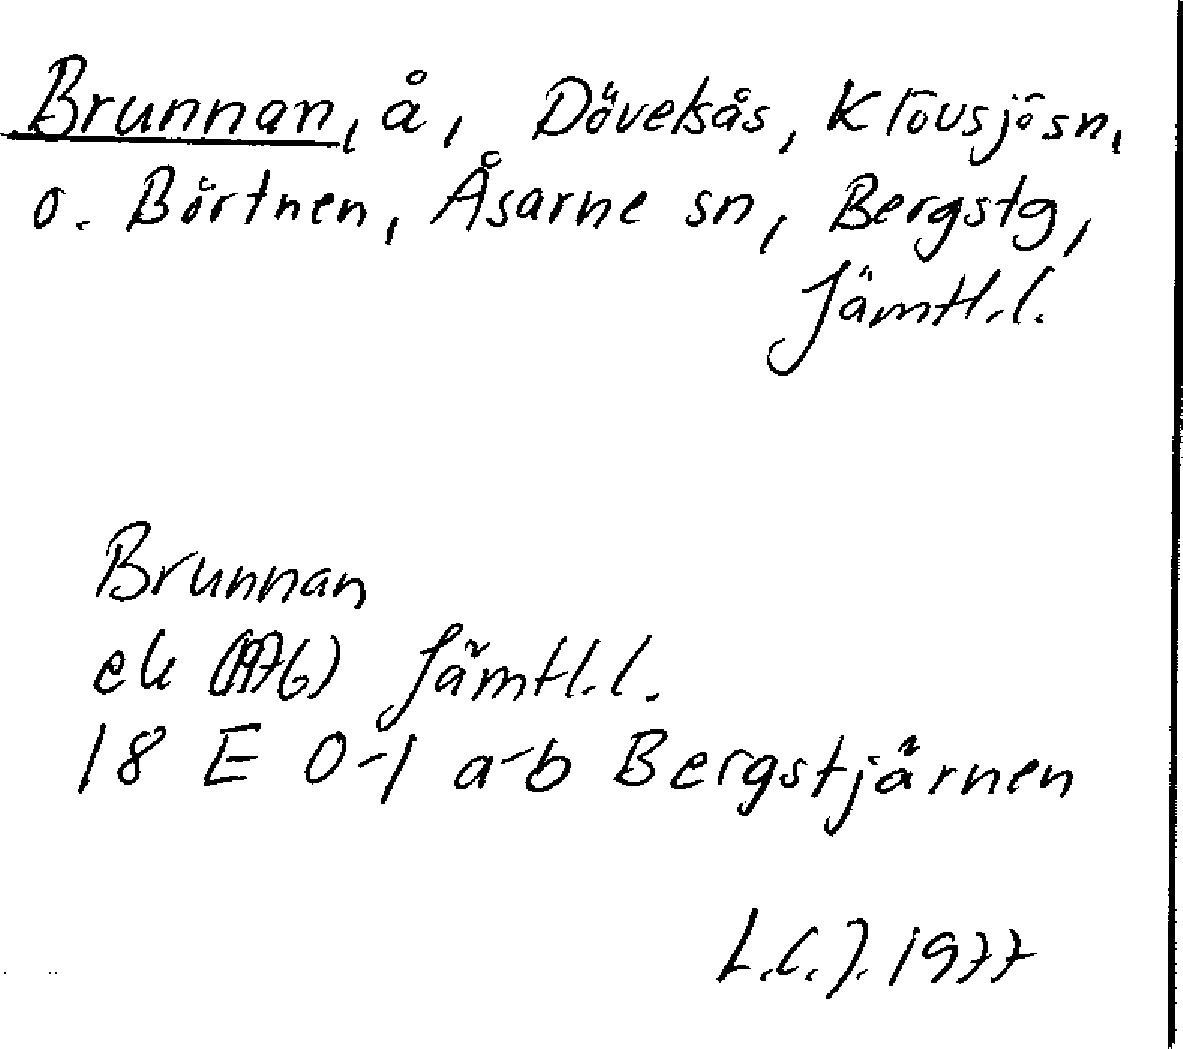 Brunnan, å, Dövelsås, Klövsjö sn,
o. Börtnen, Åsarne sn, Bergstg,
Jämtl.l.
Brunnan
ek (1976) Jämtl.l.
18 E 0-1 a-b Bergstjärnen
L.C.J. 1977